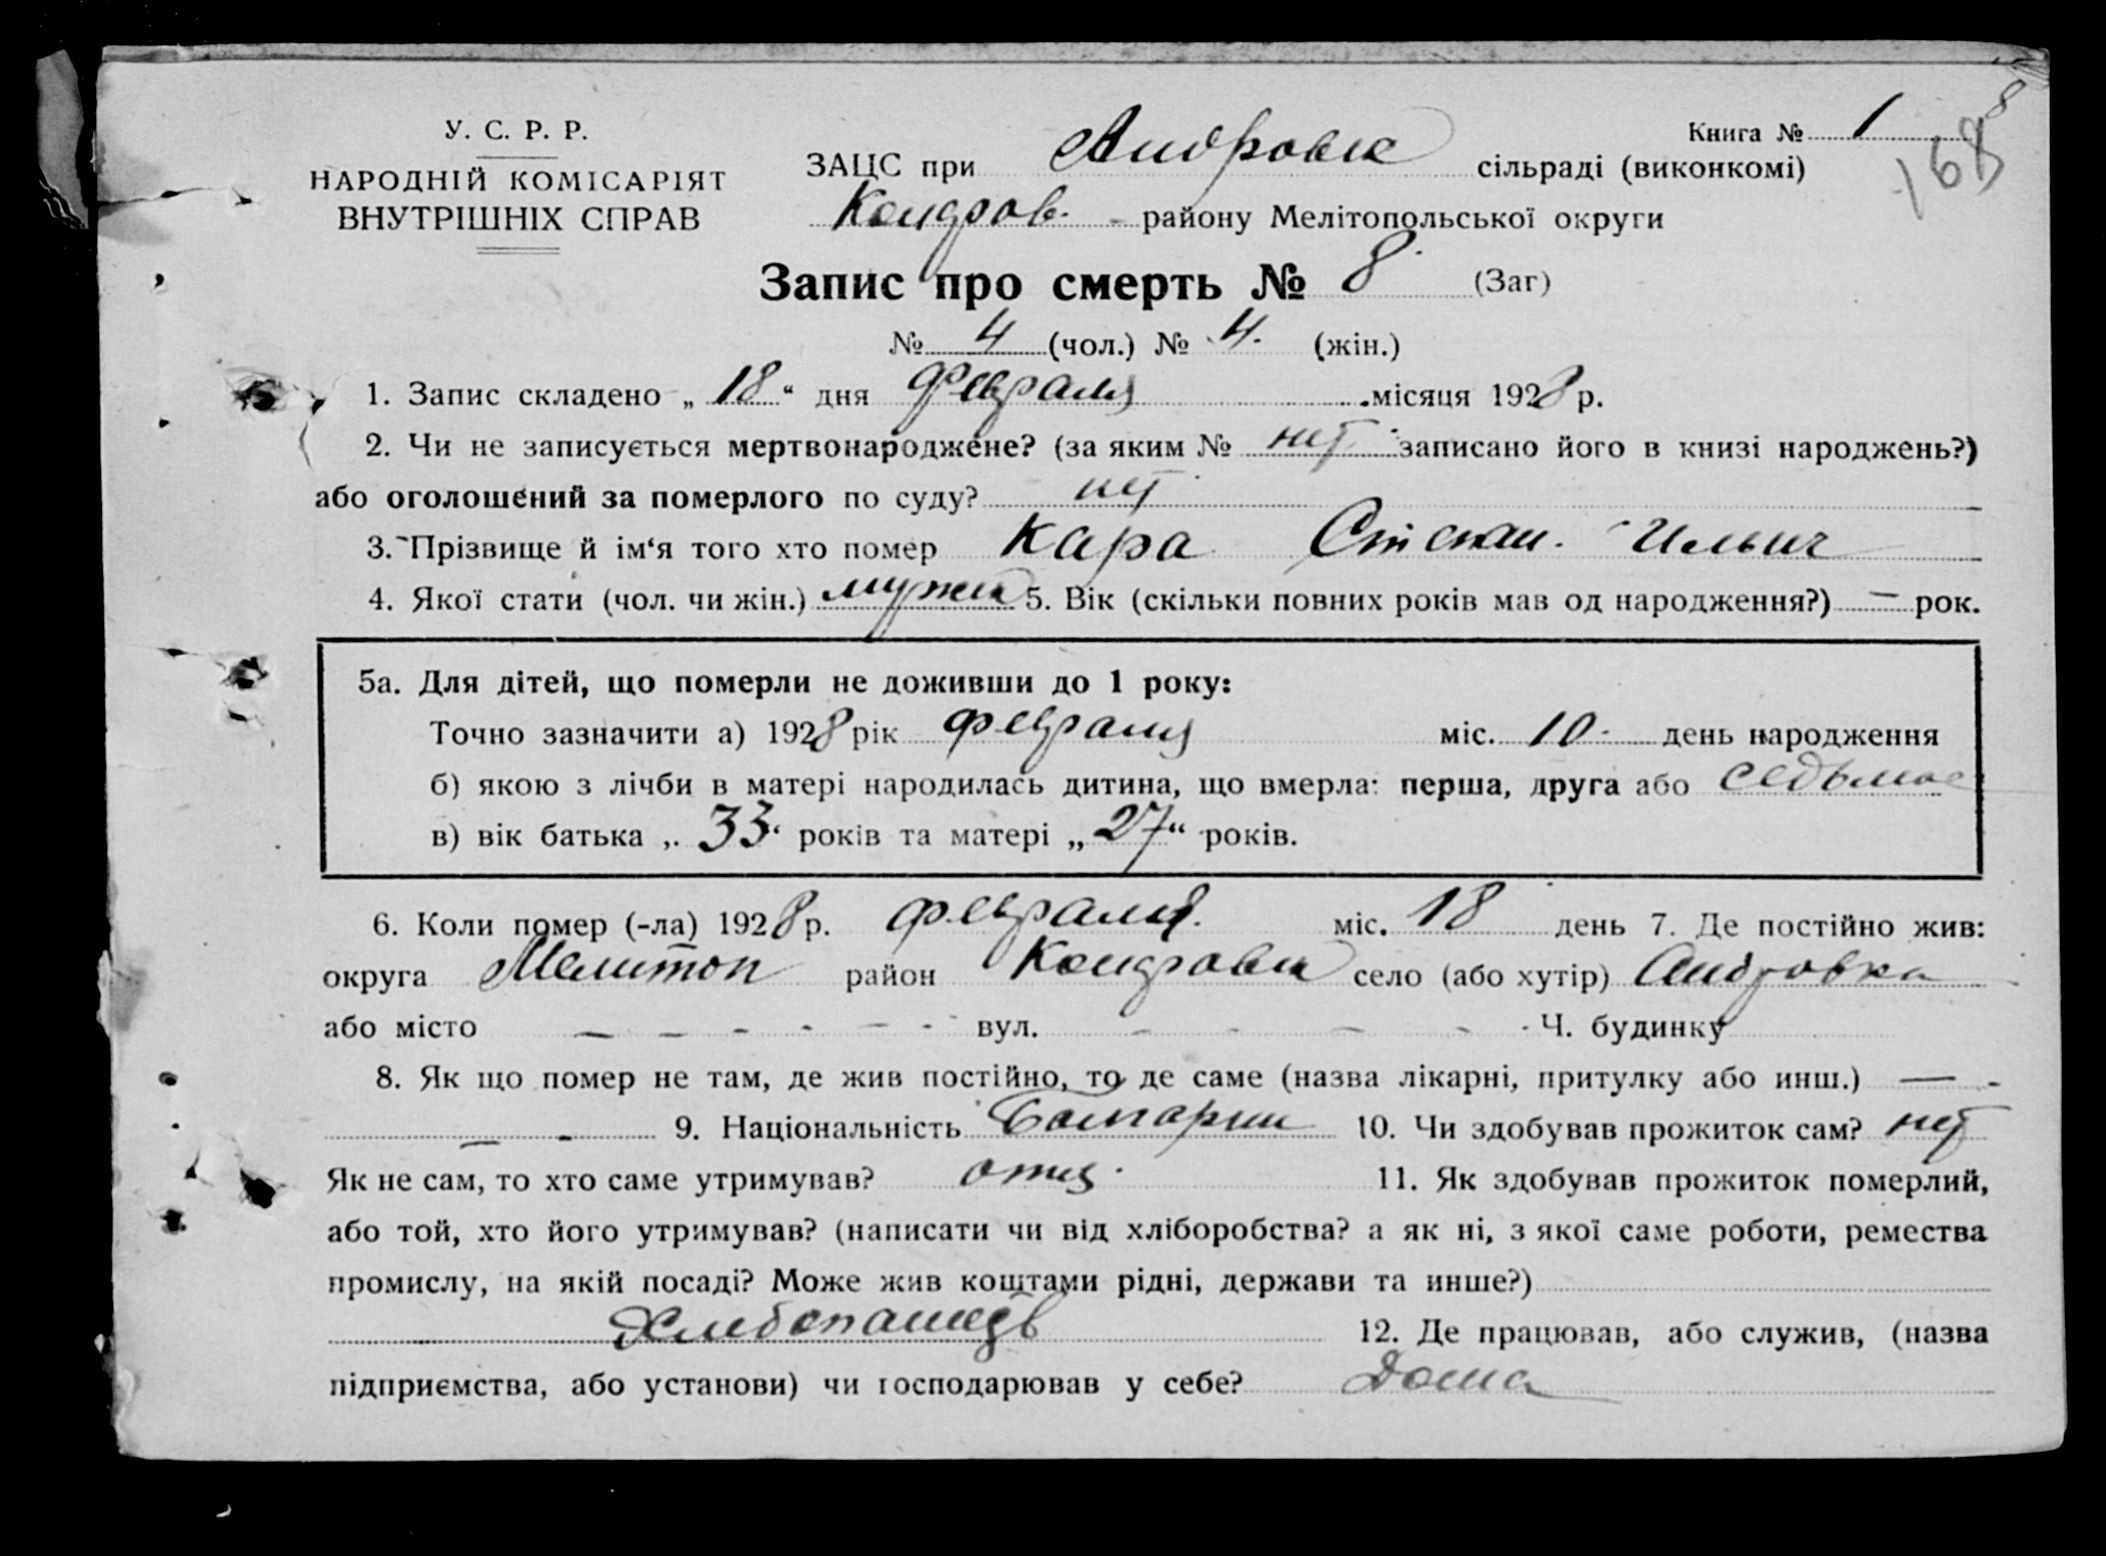 У. С. Р. Р.
НАРОДНІЙ КОМІСАРІЯТ
ВНУТРІШНІХ СПРАВ
Книга № 1
168
8
ЗАЦС при Андровк сільраді (виконкомі)
Кондров. району Мелітопольської округи
Запис про смерть № 8 (Заг)
№ 4 (чол.) № 4. (жін.)
1. Запис складено „ 18 “ дня февраля місяця 1928 р.
2. Чи не записується мертвонароджене? (за яким № нет записано його в книзі народжень?)
або оголошений за померлого по суду? нет
3. Прізвище й ім‘я того хто помер Кара Степан. Ильич
4. Якої стати (чол. чи жін.) мужск 5. Вік (скільки повних років мав од народження?) — рок.
5а. Для дітей, що померли не доживши до 1 року:
Точно зазначити а) 1928 рік февраля міс. 10 день народження
б) якою з лічби в матері народилась дитина, що вмерла: перша, друга або седьмое
в) вік батька „ 33 “ років та матері „ 27 “ років.
6. Коли помер (-ла) 1928 р. февраля. міс. 18 день 7. Де постійно жив:
округа Мелитоп район Кондровк село (або хутір) Андровка
або місто — — - - — - - вул. - - — - Ч. будинку
8. Як що помер не там, де жив постійно, то де саме (назва лікарні, притулку або инш.) — -
— - 9. Національність Болгарин 10. Чи здобував прожиток сам? нет
Як не сам, то хто саме утримував? отец. 11. Як здобував прожиток померлий,
або той, хто його утримував? (написати чи від хліборобства? а як ні, з якої саме роботи, ремества
промислу, на якій посаді? Може жив коштами рідні, держави та инше?)
Хлебопашеств 12. Де працював, або служив, (назва
підприємства, або установи) чи господарював у себе? Дома